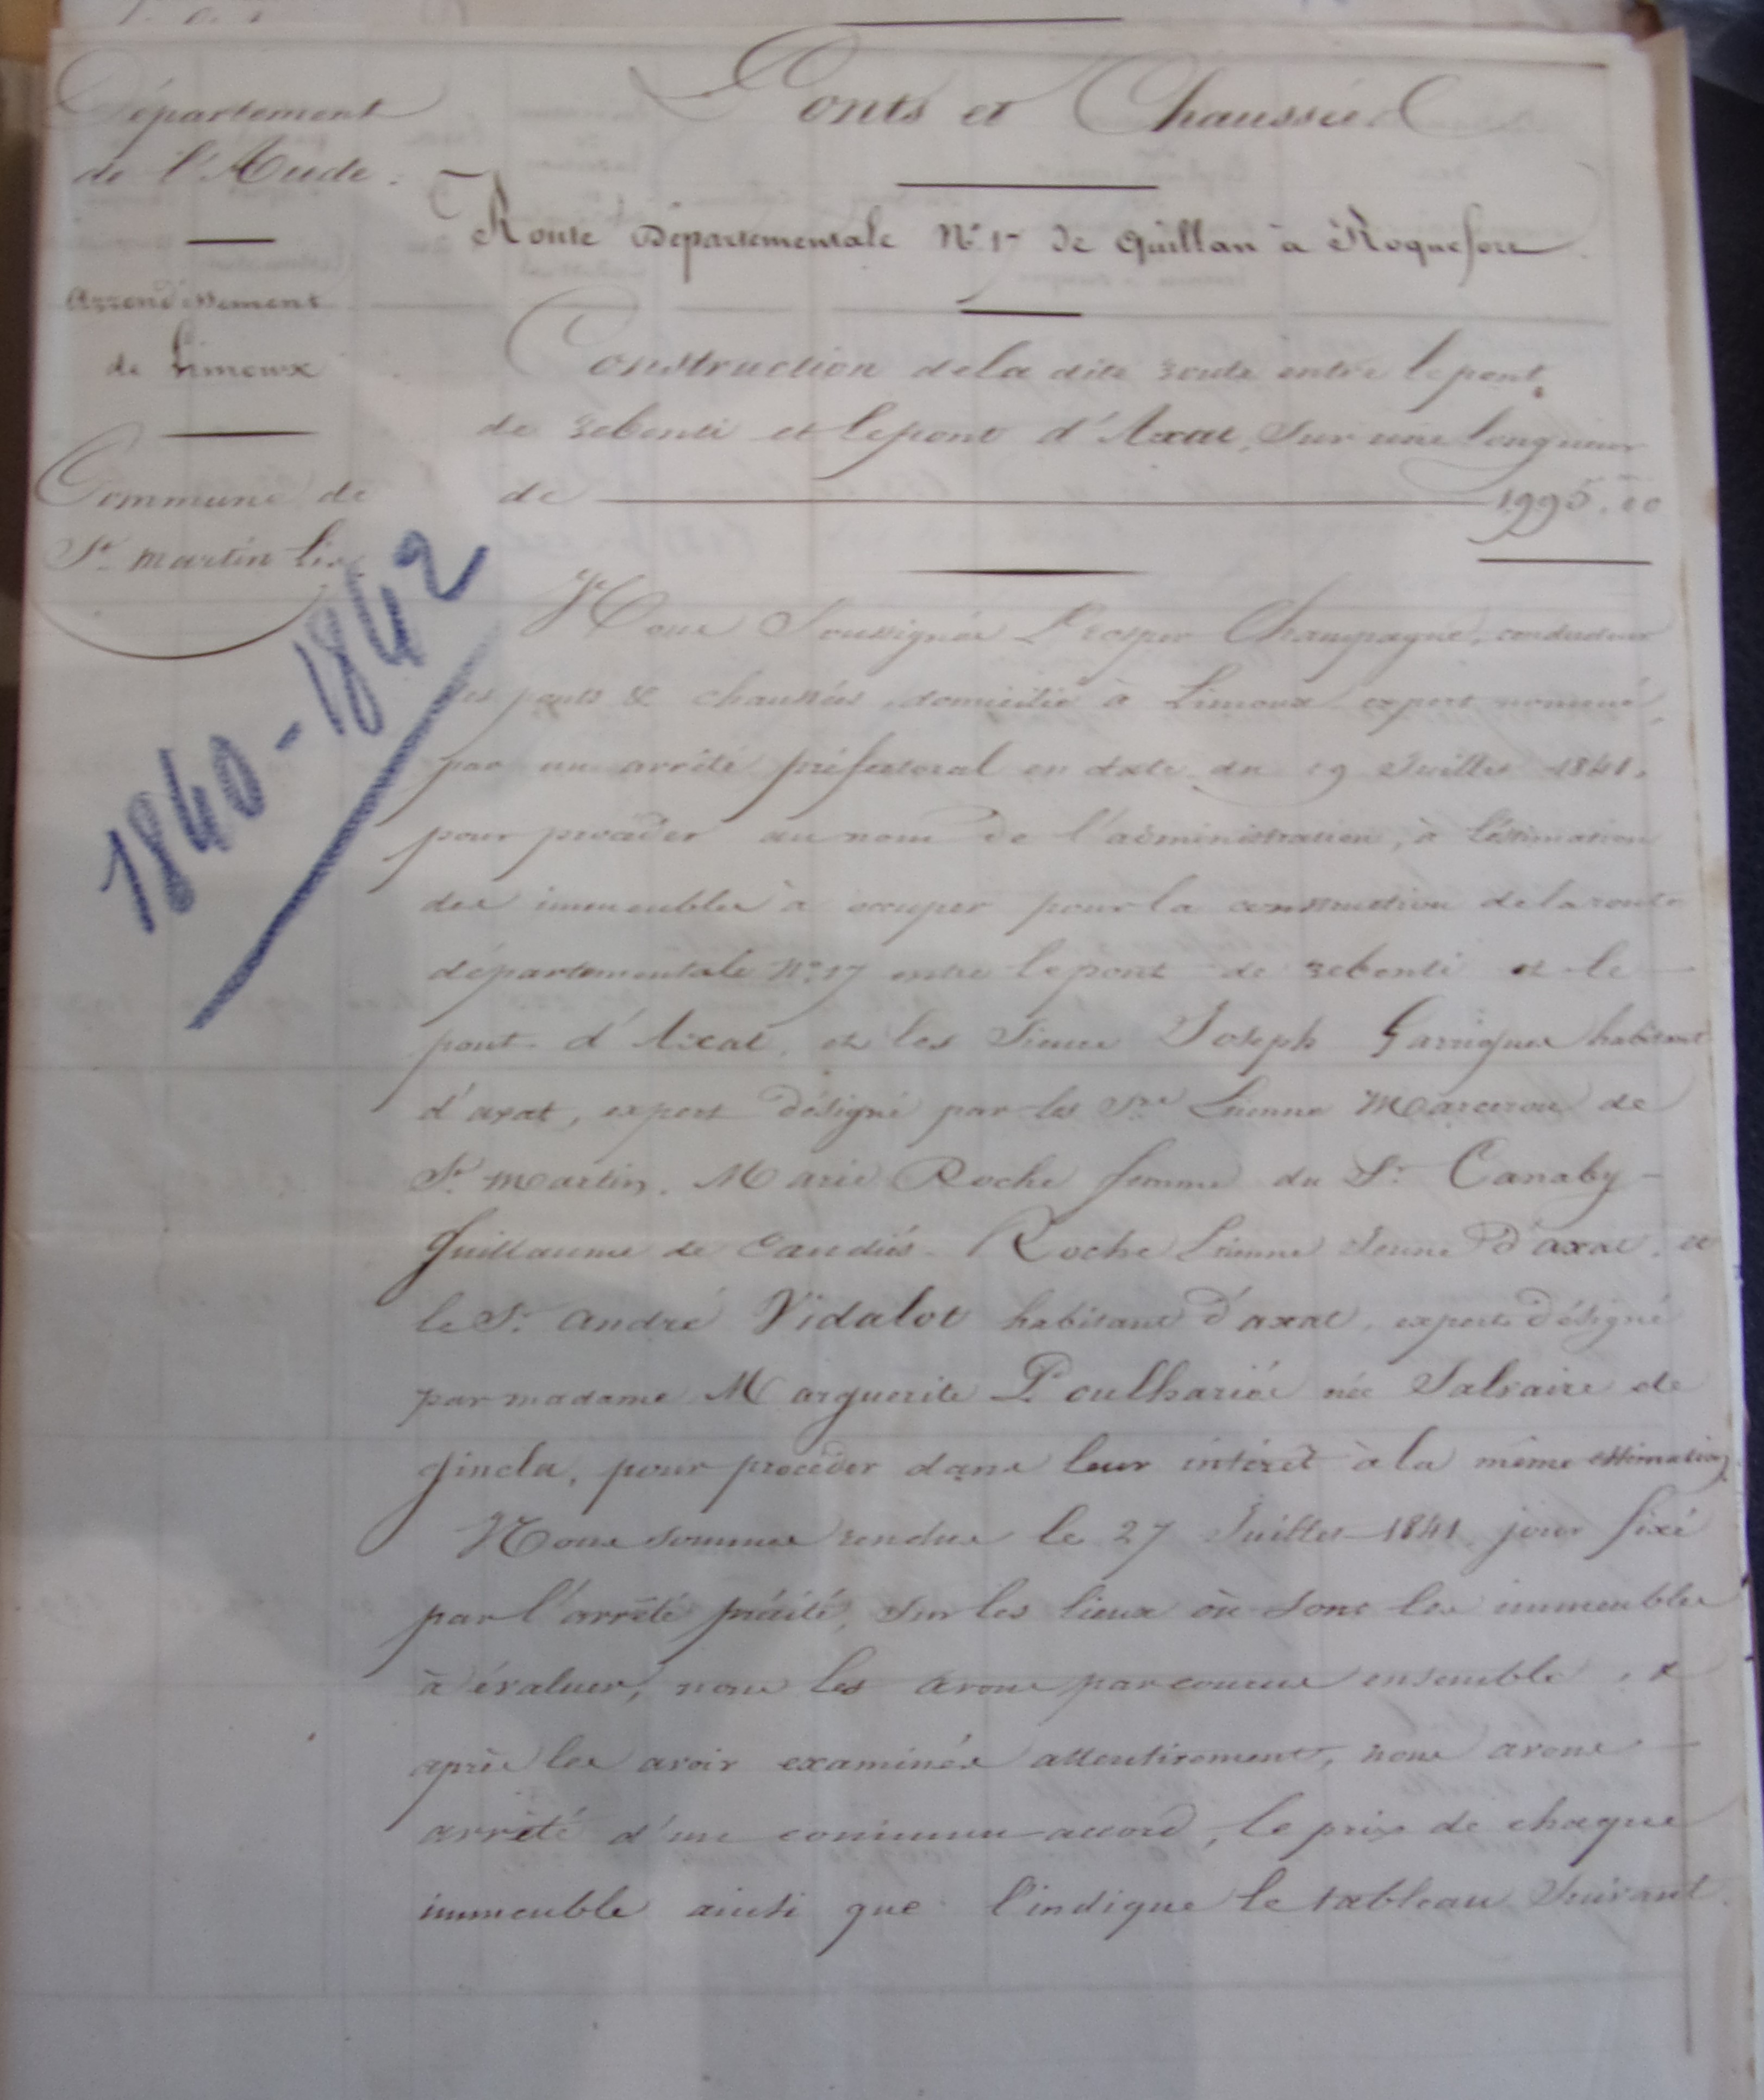 Département
de l'Aude.
Arrondissement
de Limoux
Commune de
St. martin lis
1840-1842
Ponts et Chaussées
Route Départementale N° 17 de Quillan à Roquefort.
Construction de la dite route entre le pont
de rebenti et le pont d'Axat, sur une longueur
de 1995.00
Nous Soussignés Prosper Champagne, conducteur
des ponts & chaussées, domicilié à Limoux expert nommé
par un arrêté préfectoral en date du 19 Juillet 1841,
pour procéder au nom de l'administration, à l'éstimation
des immeubles à occuper pour la construction de la route
départementale N° 17 entre le pont de rebenti et le
pont d'Axat, et les Sieurs Joseph Garrigues habitant
d'axat, expert désigné par les Srs Etienne Marcerou de
St. martin, Marie Roche femme du Sr. Canaby
Guillaume de Caudiés Roche Etienne Jeune d'axat, et
le Sr. André Vidalot habitant d'axat, expert désigné
par madame Marguerite Poulhariés née Salvaire de
gincla, pour procéder dans leur intérêt à la même estimation,
Nous sommes rendus le 27 Juillet 1841 jour fixé
par l'arrêté précité, sur les lieux où sont les immeubles
à évaluer, nous les avons parcourus ensemble, &
après les avoir examinés attentivement, nous avons
arrêté d'un commun accord, le prix de chaque
immeuble ainsi que l'indique le tableau Suivant.